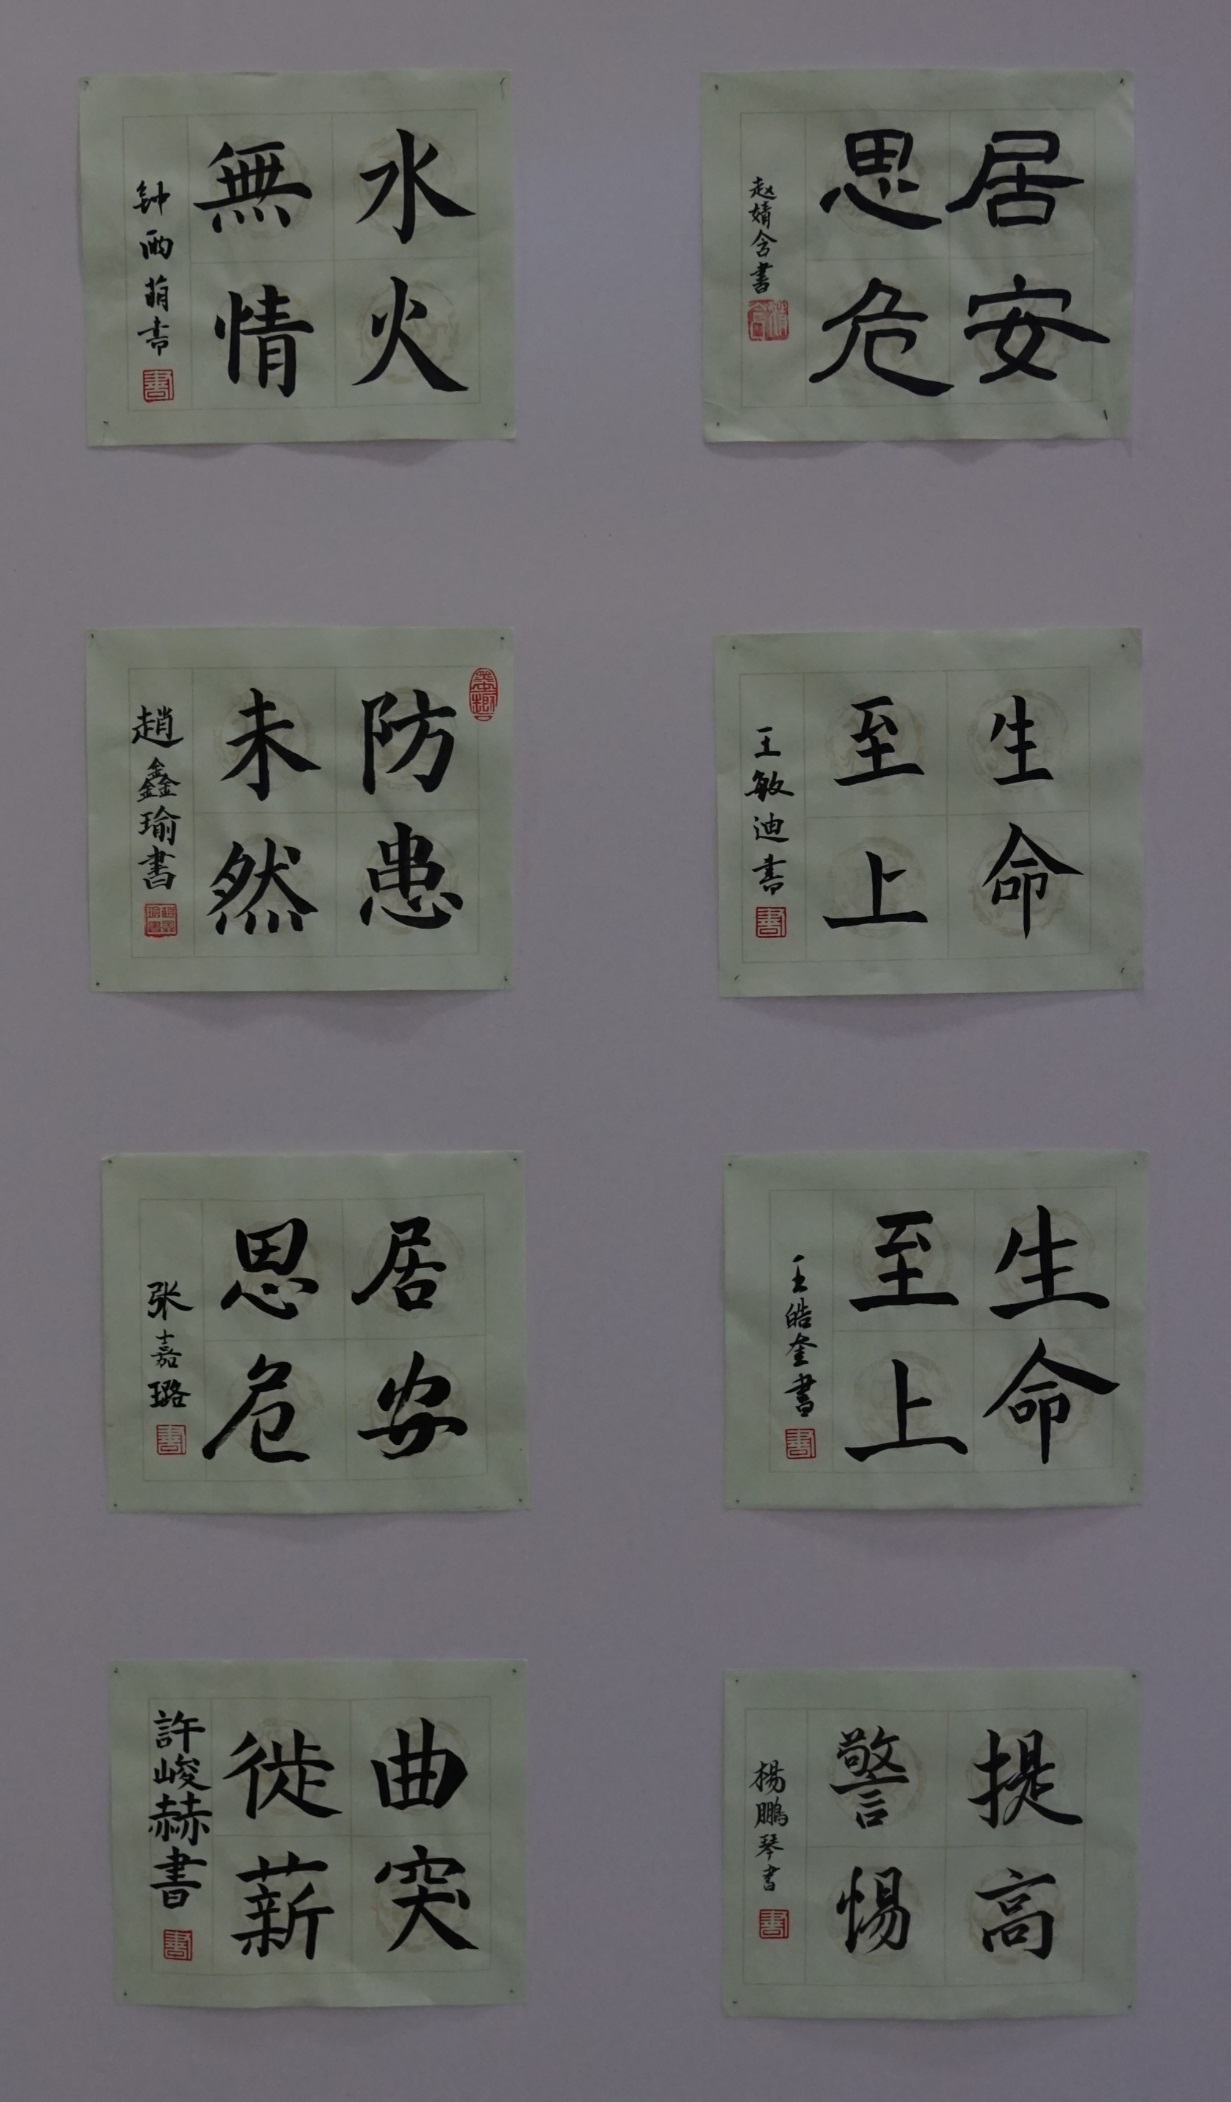 水火
無情
钟雨萌书
居安
思危
赵婧含書
防患
未然
趙鑫瑜書
生命
至上
王敏迪書
居安
思危
张嘉璐
生命
至上
王皓奎書
曲突
徙薪
許峻赫書
提高
警惕
楊鵬琴書